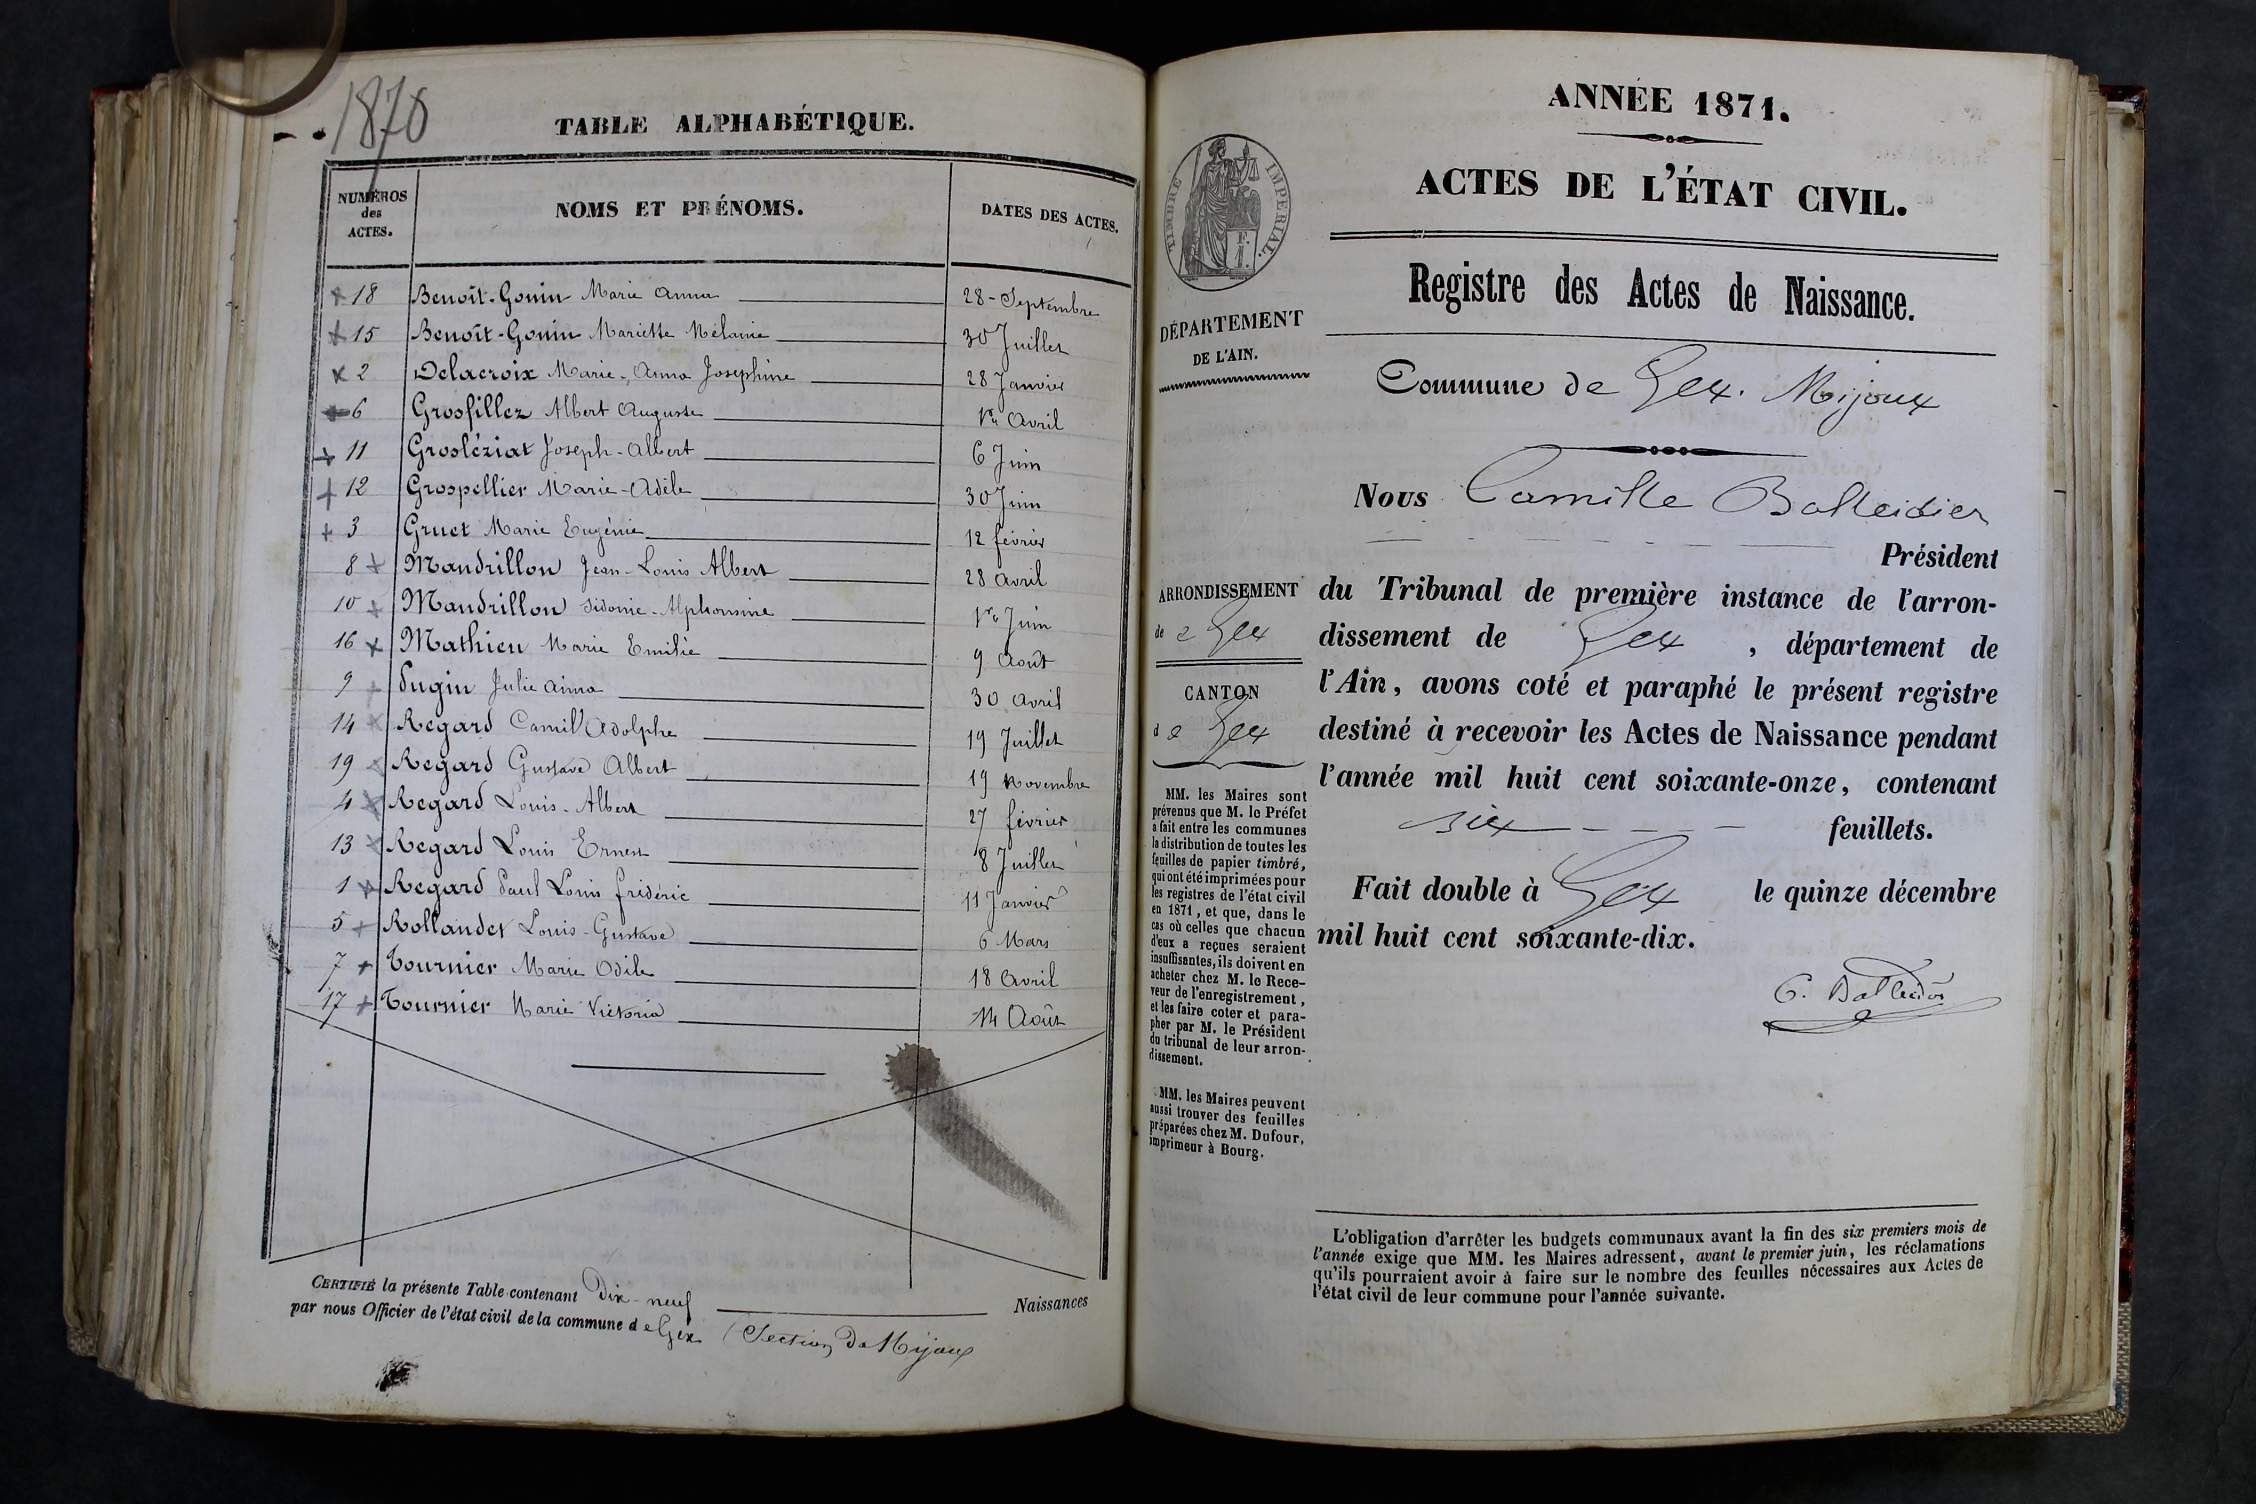 1870
TABLE ALPHABÉTIQUE.
NUMÉROS des ACTES. NOMS ET PRÉNOMS. DATES DES ACTES.
18 Benoît-Gonin Marie Anna 28 - Septembre
15 Benoît-Gonin Mariette Mélanie 30 Juillet
2 Delacroix Marie-Anna Joséphine 28 Janvier
6 Grosfillez Albert Auguste 1er Avril
11 Grosléziat Joseph-Albert 6 Juin
12 Grospellier Marie-Adèle 30 Juin
3 Gruet Marie Eugénie 12 février
8 Mandrillon Jean-Louis Albert 28 avril
10 Mandrillon Sidonie-Alphonsine 1er Juin
16 Mathieu Marie Emilie 9 Août
9 Pugin Julie Aima 30 avril
14 Regard Camill' Adolphe 19 Juillet
19 Regard Gustave Albert 19 Novembre
4 Regard Louis-Albert 27 février
13 Regard Louis Ernest 8 Juillet
1 Regard Paul Louis frédéric 11 Janvier
5 Rollandet Louis-Gustave 6 Mars
7 Tournier Marie Odile 18 Avril
17 Tournier Marie Victoria 14 Août
CERTIFIÉ la présente Table contenant Dix-neuf Naissances
par nous Officier de l'état civil de la commune de Gex (Section de Mijoux
ANNÉE 1871.
ACTES DE L'ÉTAT CIVIL.
TIMBRE IMPÉRIAL.
Registre des Actes de Naissance.
DÉPARTEMENT
DE L'AIN.
Commune de Gex. Mijoux
Nous Camille Balleidier
Président
ARRONDISSEMENT
de Gex
CANTON
de Gex
du Tribunal de première instance de l'arron-
dissement de Gex, département de
l'Ain, avons coté et paraphé le présent registre
destiné à recevoir les Actes de Naissance pendant
l'année mil huit cent soixante-onze, contenant
six feuillets.
Fait double à Gex le quinze décembre
mil huit cent soixante-dix.
C. Balleidier
MM. les Maires sont
prévenus que M. le Préfet
a fait entre les communes
la distribution de toutes les
feuilles de papier timbré,
qui ont été imprimées pour
les registres de l'état civil
en 1871, et que, dans le
cas où celles que chacun
d'eux a reçues seraient
insuffisantes, ils doivent en
acheter chez M. le Rece-
veur de l'enregistrement,
et les faire coter et para-
pher par M. le Président
du tribunal de leur arron-
dissement.
MM. les Maires peuvent
aussi trouver des feuilles
préparées chez M. Dufour,
imprimeur à Bourg.
L'obligation d'arrêter les budgets communaux avant la fin des six premiers mois de
l'année exige que MM. les Maires adressent, avant le premier juin, les réclamations
qu'ils pourraient avoir à faire sur le nombre des feuilles nécessaires aux Actes de
l'état civil de leur commune pour l'année suivante.